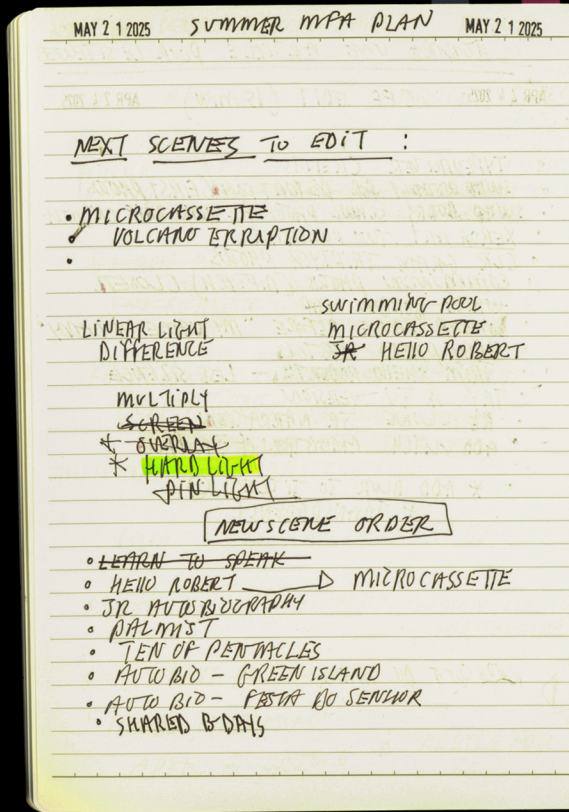 MAY 21 2025 SUMMER MFA PLAN MAY 21 2025
NEXT SCENES TO EDIT :
• MICROCASSETTE
• VOLCANO ERRUPTION
•
SWIMMING POOL
LINEAR LIGHT MICROCASSETTE
DIFFERENCE JR HELLO ROBERT
MULTIPLY
SCREEN
OVERLAY
* HARD LIGHT
PIN LIGHT
NEW SCENE ORDER
• LEARN TO SPEAK
• HELLO ROBERT → MICROCASSETTE
• JR AUTOBIOGRAPHY
• PALMIST
• TEN OF PENTACLES
• AUTO BIO - GREEN ISLAND
• AUTO BIO - FESTA DO SENHOR
• SHARED B-DAYS